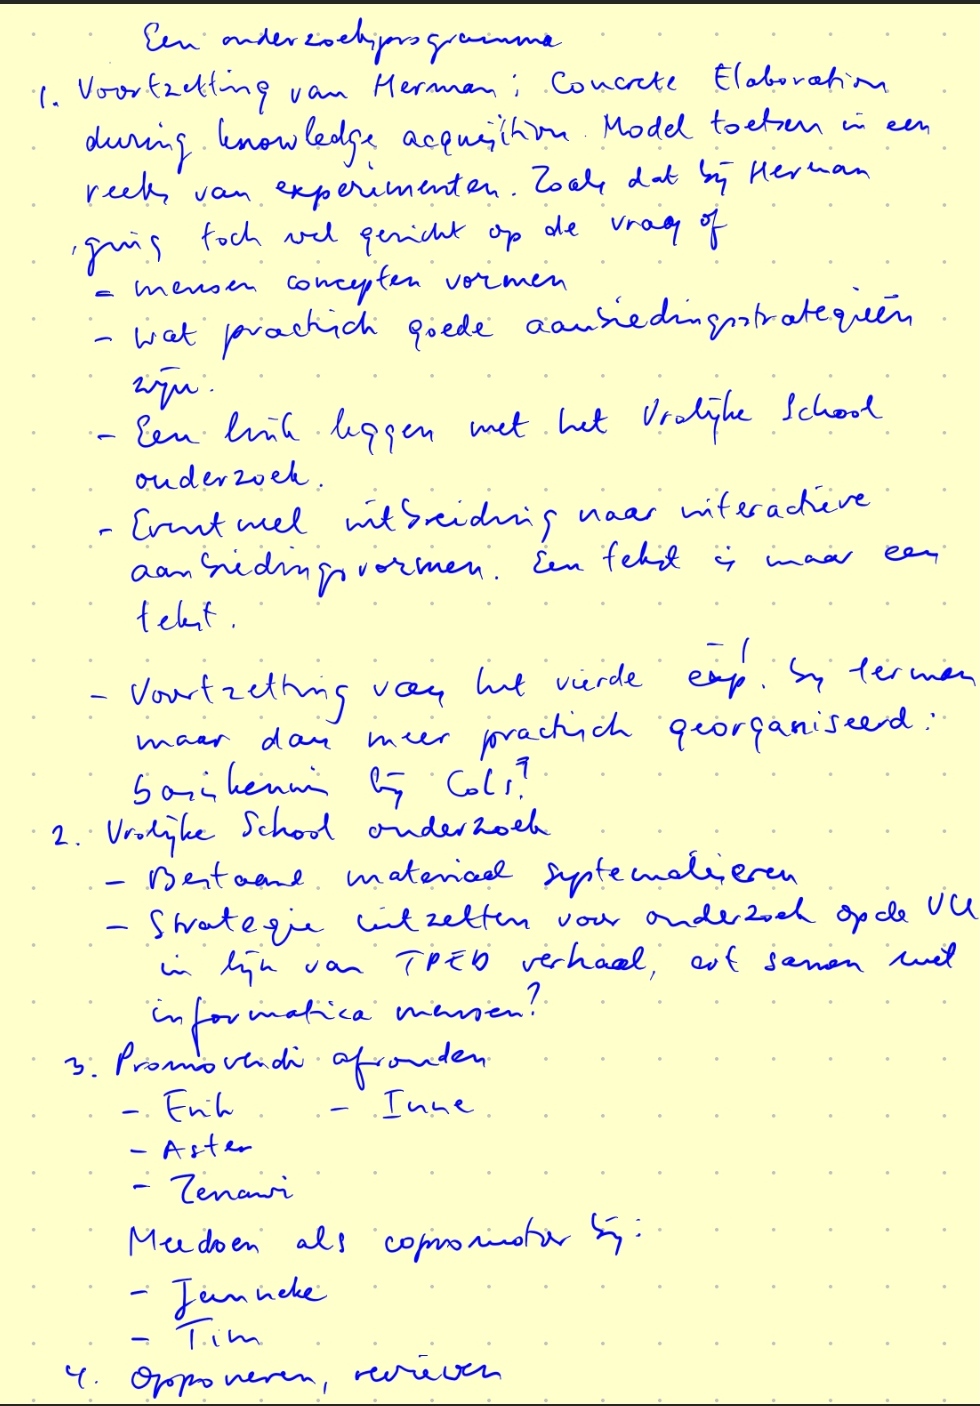 Een onderzoeksprogramma
1. Voortzetting van Herman; Concrete Elaboration
during knowledge acquisition. Model toetsen in een
reeks van experimenten. Zoals dat bij Herman
ging toch wel gericht op de vraag of
- mensen concepten vormen
- wat practisch goede aanbiedingsstrategieën
zijn.
- Een link leggen met het Vrolijke School
onderzoek.
- Eventueel uitbreiding naar interactieve
aanbiedingsvormen. Een tekst is maar een
tekst.
- Voortzetting van het vierde exp. bij Herman
maar dan meer practisch georganiseerd:
basiskennis bij Cols?
2. Vrolijke School onderzoek
- Bestaand materiaal systematiseren
- Strategie uitzetten voor onderzoek op de VU
in lijn van TPED verhaal, evt samen met
informatica mensen?
3. Promovendi afronden
- Erik - Inne
- Aster
- Zenawi
Meedoen als copromotor bij:
- Janneke
- Tim
4. Opponeren, reviewen